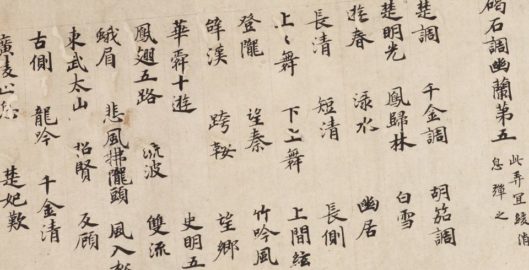 碣石調幽蘭第五 此弄宜緩消息彈之
楚調 千金調 胡笳調
楚明光 鳳歸林 白雪
易春 淥水 幽居
長清 短清 長側
上〻舞 下上舞 上間絃
登隴 望秦 竹吟風
辟溪 跨鞍 望鄉
華舜十遊 史明五
鳳翅五路 流波 雙流
蛾眉 悲風拂隴頭 風入
東武太山 招賢 反顧
古側 龍吟 千金清
廣陵止息 楚妃歎